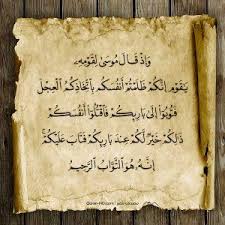 وَإِذْ قَالَ مُوسَىٰ لِقَوْمِهِۦ
يَٰقَوْمِ إِنَّكُمْ ظَلَمْتُمْ أَنفُسَكُم بِٱتِّخَاذِكُمُ ٱلْعِجْلَ
فَتُوبُوٓا۟ إِلَىٰ بَارِئِكُمْ فَٱقْتُلُوٓا۟ أَنفُسَكُمْ
ذَٰلِكُمْ خَيْرٌ لَّكُمْ عِندَ بَارِئِكُمْ فَتَابَ عَلَيْكُمْ ۚ
إِنَّهُۥ هُوَ ٱلتَّوَّابُ ٱلرَّحِيمُ